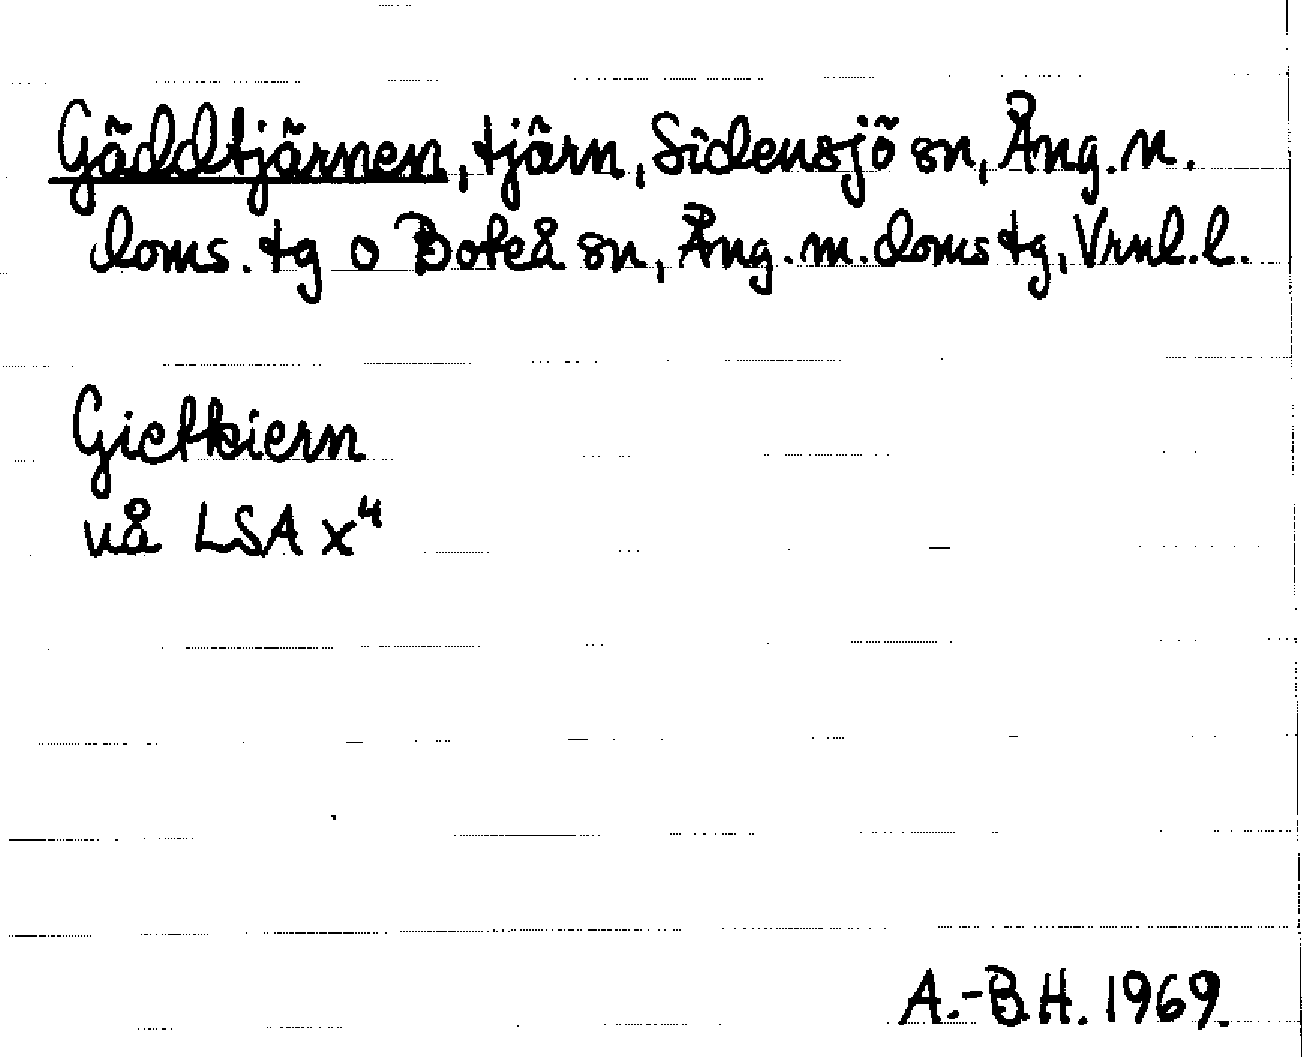 Gäddtjärnen, tjärn, Sidensjö sn, Ång. n.
doms. tg o Boteå sn, Ång. m. doms tg, Vrnl. l.
Gietkiern
vå LSA x⁴
A.-B.H. 1969.